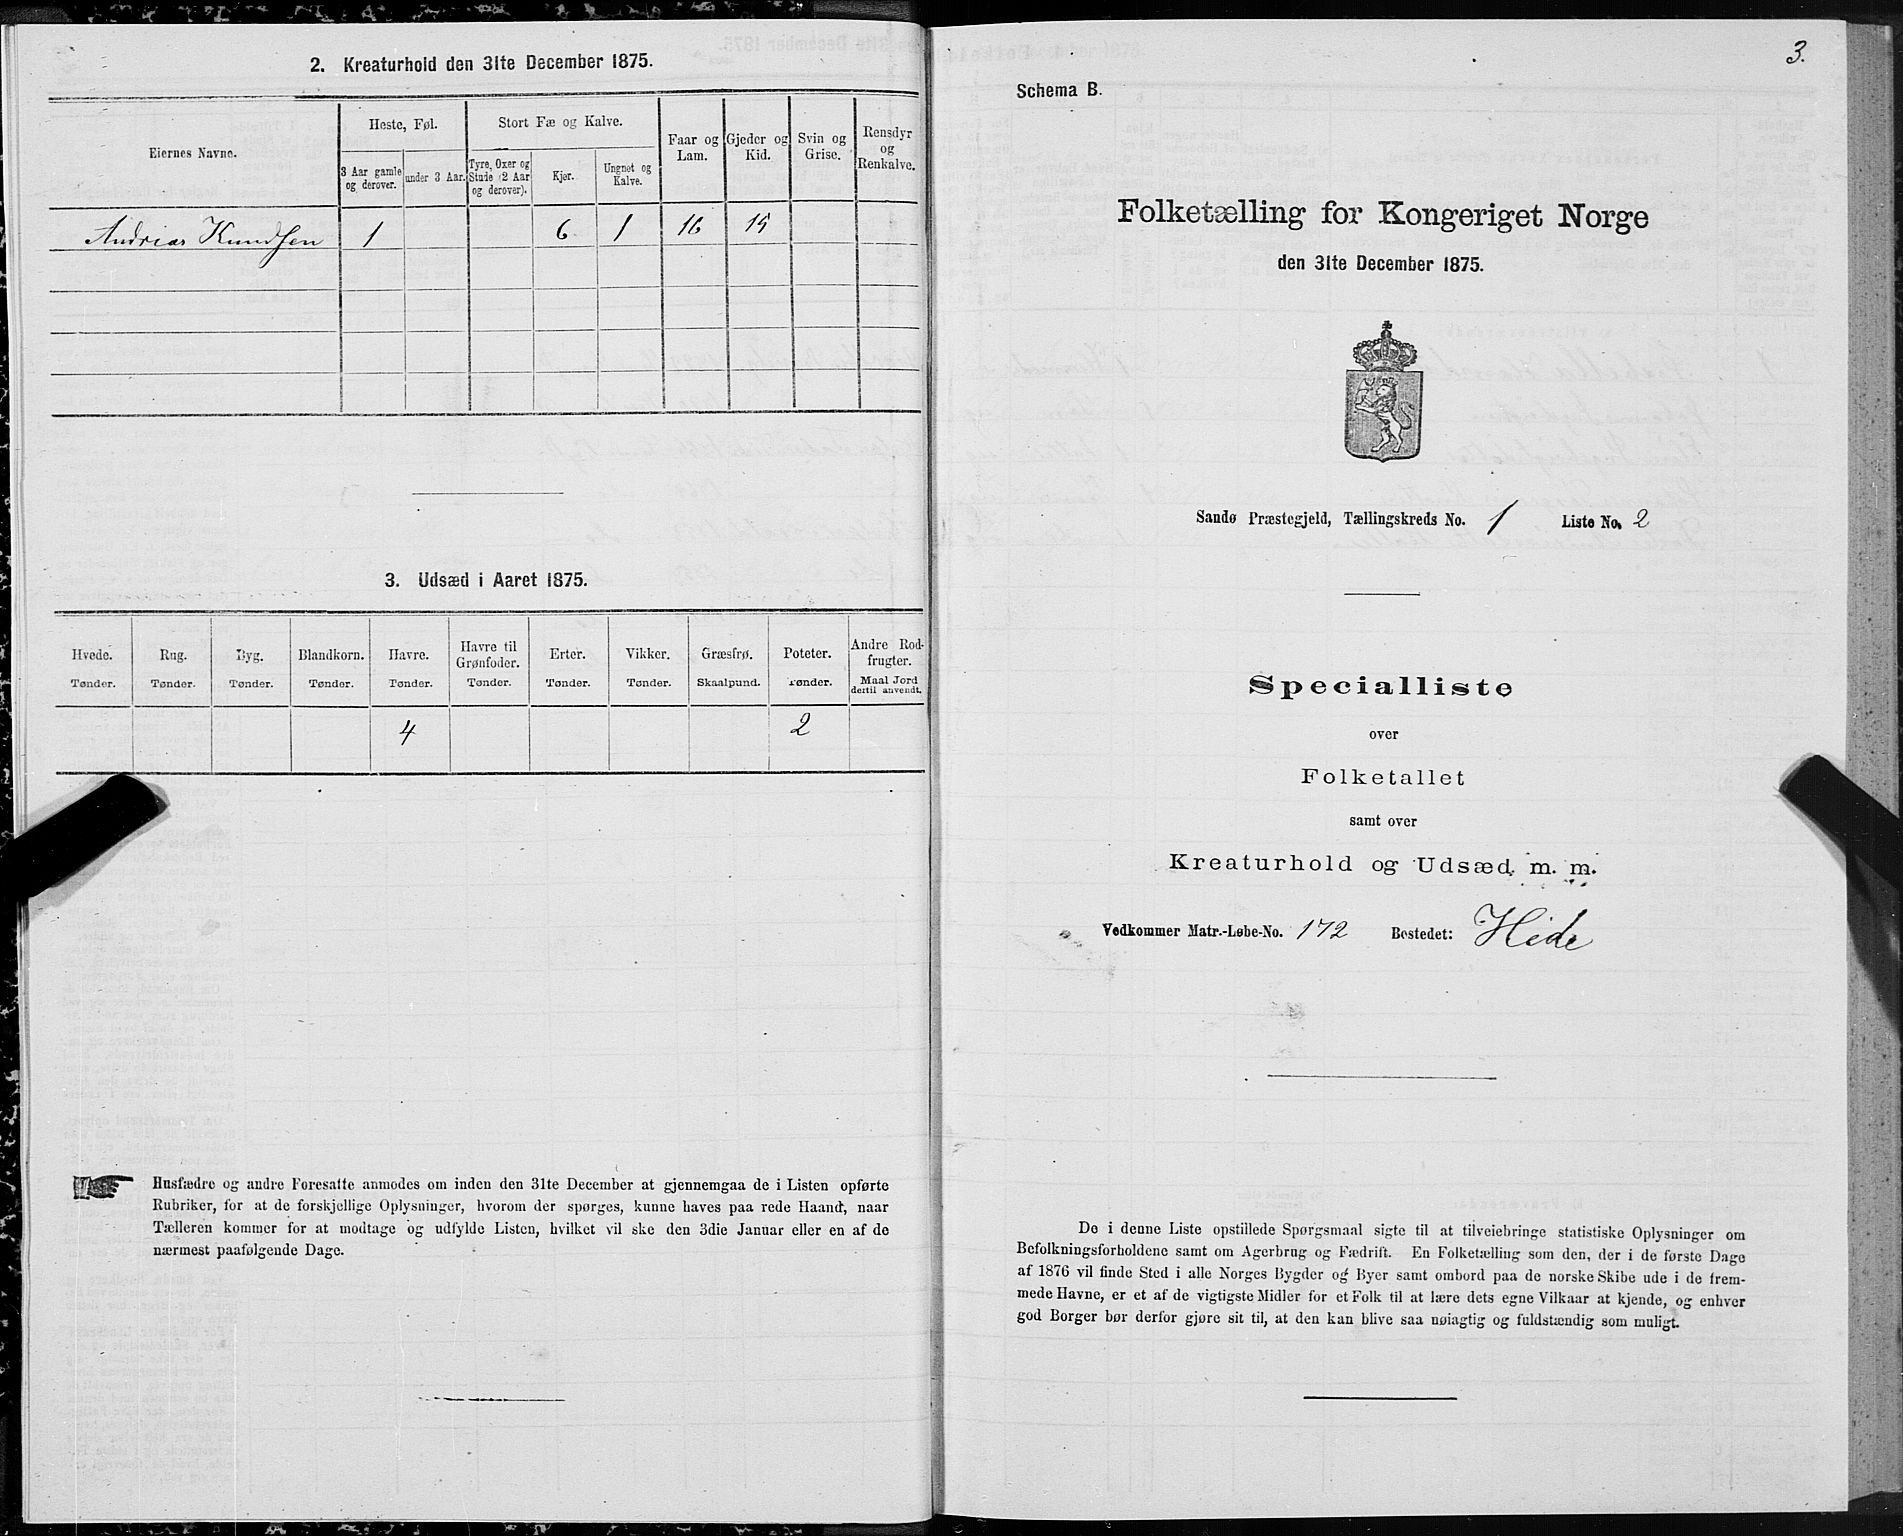 2. Kreaturhold den 31te December 1875.
Eiernes Navne.
Heste, Føl.
Stort Fæ og Kalve.
Faar og Lam.
Gjeder og Kid.
Svin og Grise.
Rensdyr og Renkalve.
3 Aar gamle og derover.
under 3 Aar.
Tyre, Oxer og Stude (2 Aar og derover).
Kjør.
Ungnøt og Kalve.
Andrias Knudsen 1 6 1 16 15
3. Udsæd i Aaret 1875.
Hvede. Rug. Byg. Blandkorn. Havre. Havre til Grønfoder. Erter. Vikker. Græsfrø. Poteter. Andre Rodfrugter.
Tønder. Tønder. Tønder. Tønder. Tønder. Tønder. Tønder. Tønder. Skaalpund. Tønder. Maal Jord dertil anvendt.
4 2
Husfædre og andre Foresatte anmodes om inden den 31te December at gjennemgaa de i Listen opførte
Rubriker, for at de forskjellige Oplysninger, hvorom der spørges, kunne haves paa rede Haand, naar
Tælleren kommer for at modtage og udfylde Listen, hvilket vil ske den 3die Januar eller en af de
nærmest paafølgende Dage.
3.
Schema B.
Folketælling for Kongeriget Norge
den 31te December 1875.
Sandø Præstegjeld, Tællingskreds No. 1 Liste No. 2
Specialliste
over
Folketallet
samt over
Kreaturhold og Udsæd m. m.
Vedkommer Matr.-Løbe-No. 172 Bostedet: Hide
De i denne Liste opstillede Spørgsmaal sigte til at tilveiebringe statistiske Oplysninger om
Befolkningsforholdene samt om Agerbrug og Fædrift. En Folketælling som den, der i de første Dage
af 1876 vil finde Sted i alle Norges Bygder og Byer samt ombord paa de norske Skibe ude i de frem-
mede Havne, er et af de vigtigste Midler for et Folk til at lære dets egne Vilkaar at kjende, og enhver
god Borger bør derfor gjøre sit til, at den kan blive saa nøiagtig og fuldstændig som muligt.